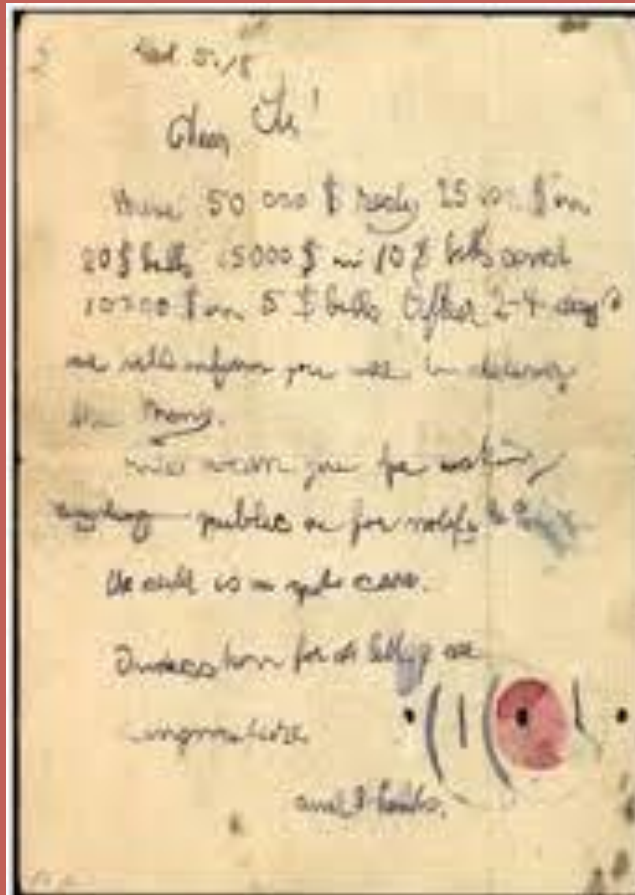 Dear Sir!
Have 50 000 $ redy 25 000 $ in
20 $ bills 15000 $ in 10 $ bills and
10000 $ in 5 $ bills After 2-4 days
we will inform you were to deliver
the Mony.
We warn you for making
anyding public or for notify the
the child is in gut care.
for all letters are
singnature
and 3 holds.